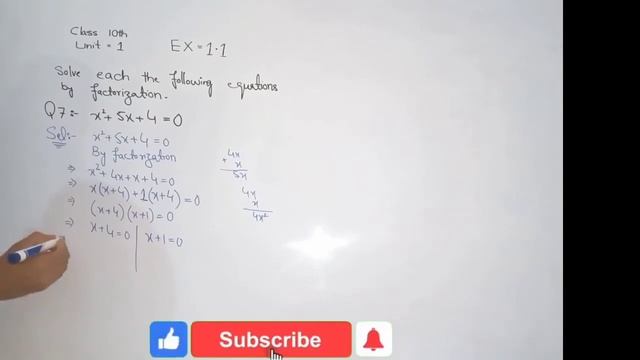 Class 10th
Unit = 1
EX = 1.1
Solve each the following equations
by factorization.
Q7:- x²+5x+4=0
Sol:- x²+5x+4=0
By factorization
⇒ x²+4x+x+4=0
⇒ x(x+4)+1(x+4)=0
⇒ (x+4)(x+1)=0
⇒ x+4=0 | x+1=0
4x
+ x
5x
4x
x
4x²
Subscribe